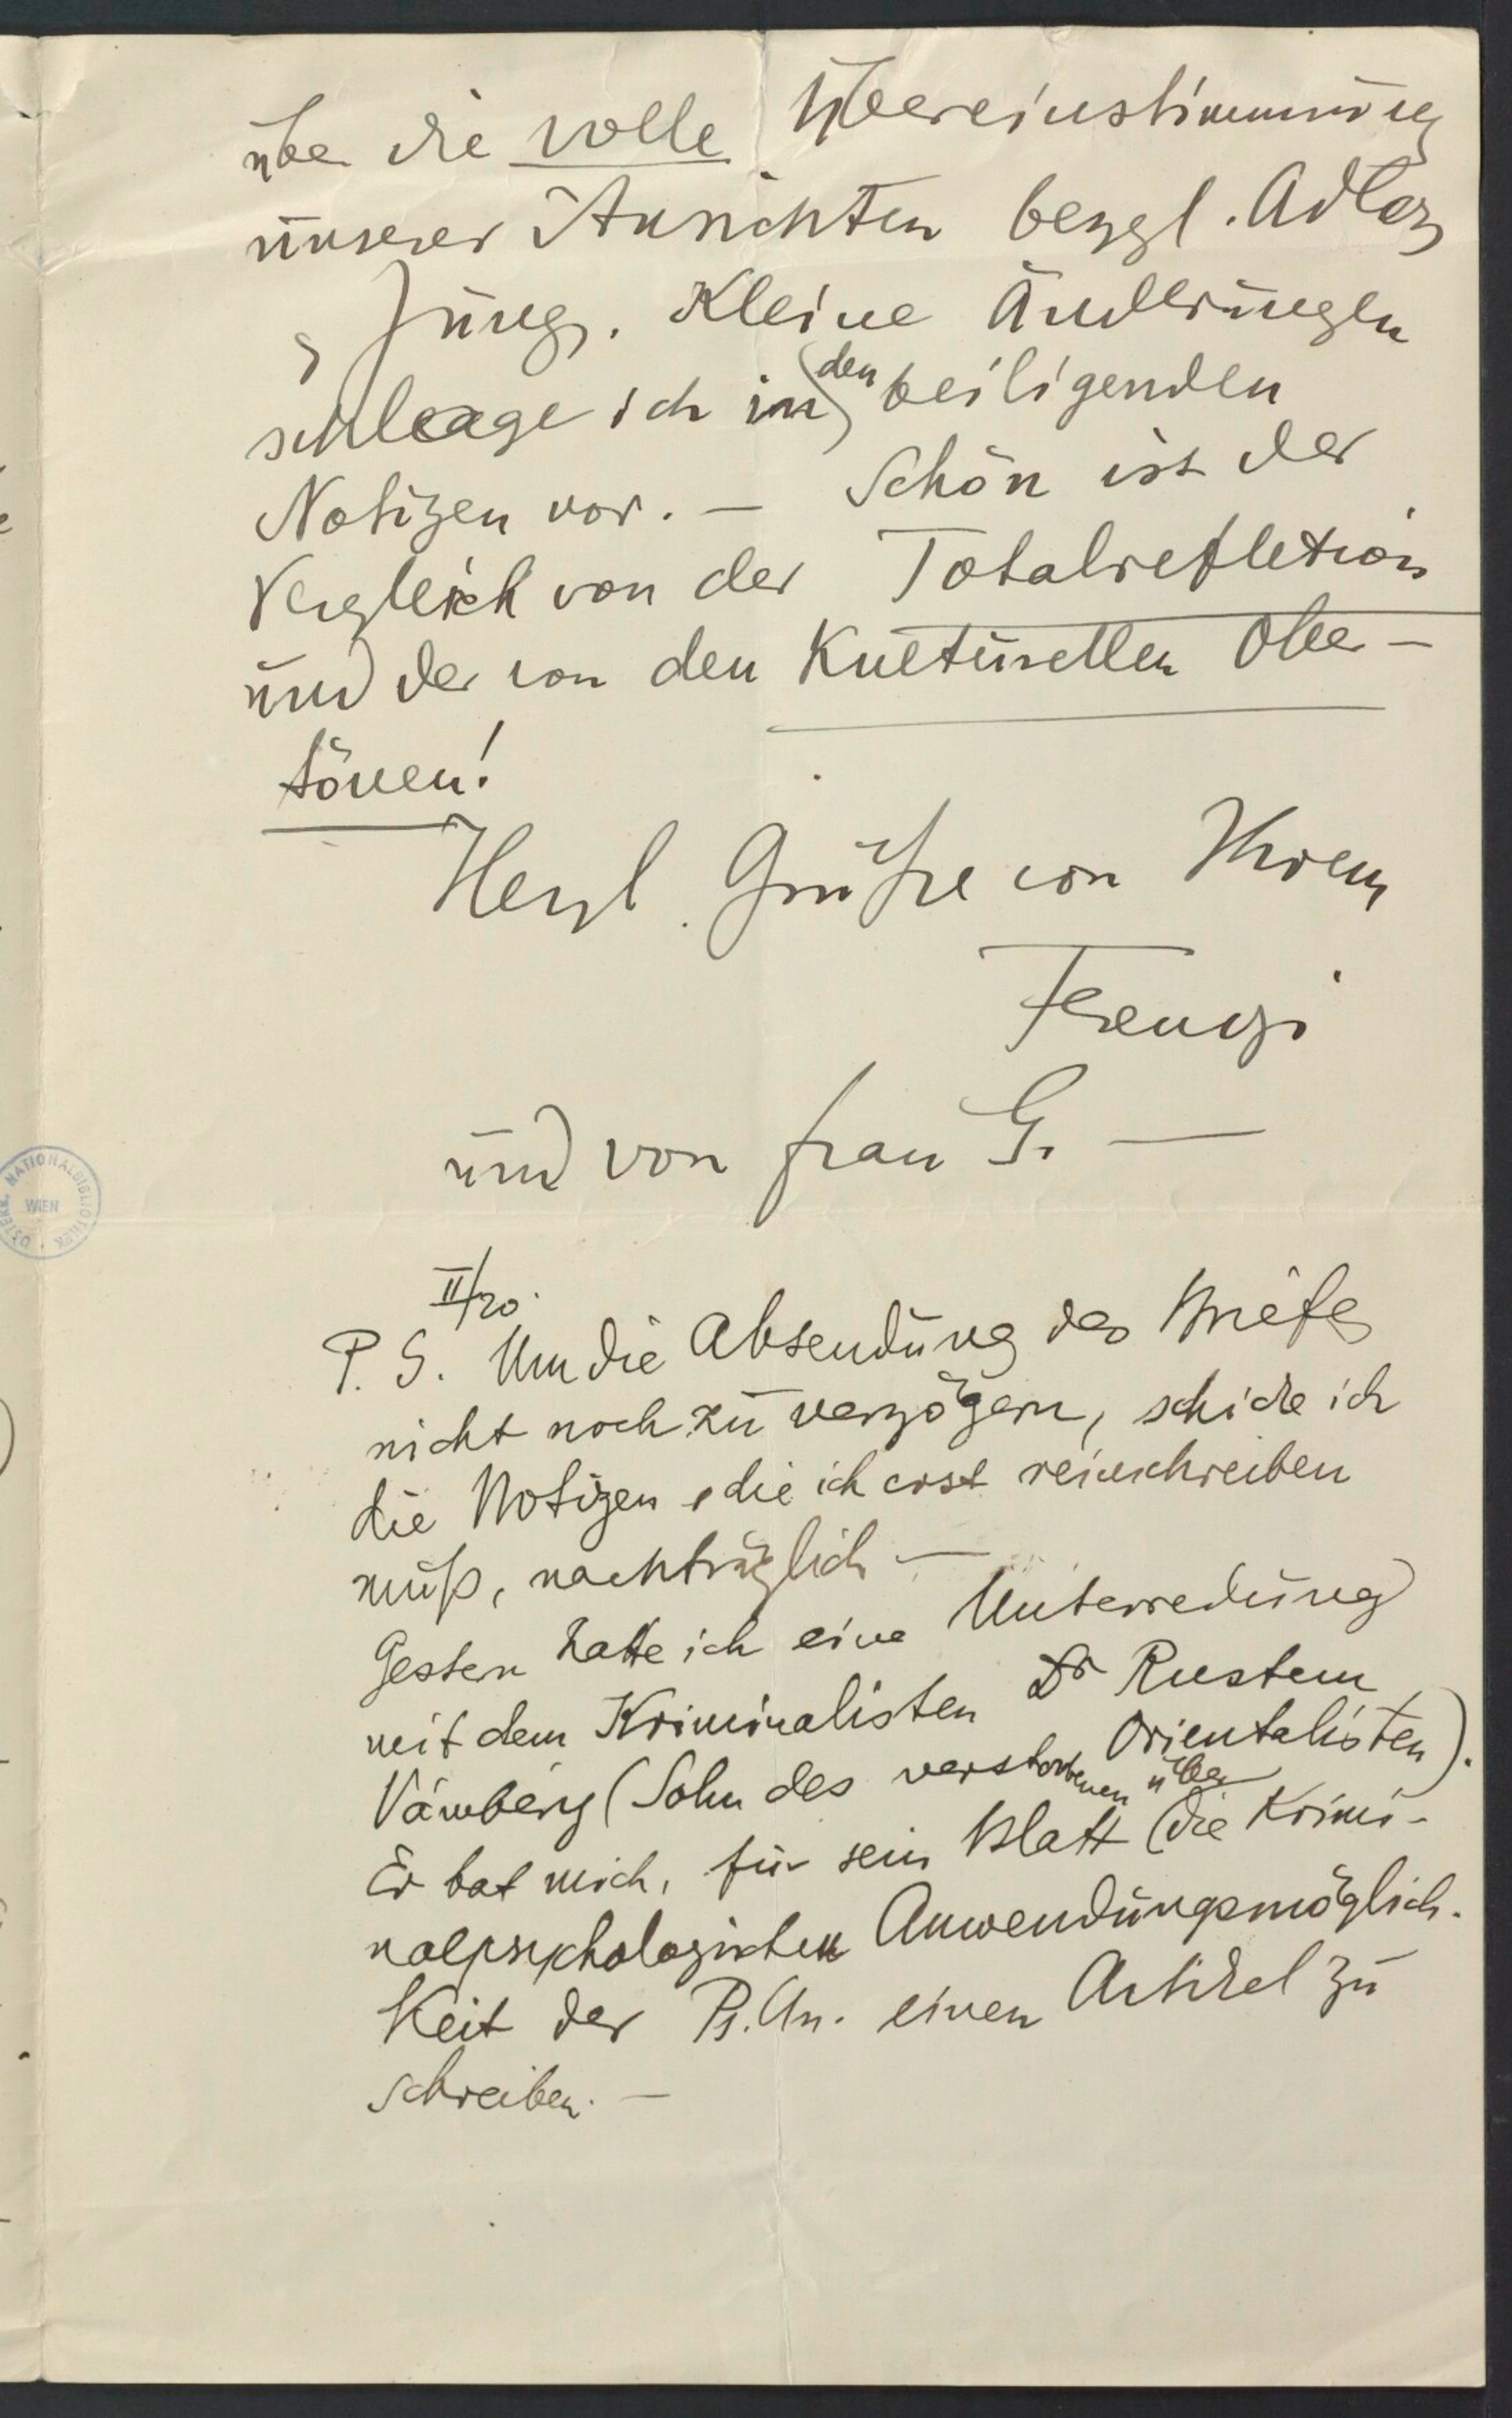 über die volle Übereinstimmung
unserer Ansichten bezgl. Adlers
& Jungs. Kleine Änderungen
schlage ich in den beiligenden
Notizen vor. – Schön ist der
Vergleich von der Totalrefletion
und der von den Kulturellen Ober-
tönen!
Herzl. Grüße von Ihrem
Ferenczi
und von Frau G. —
II/20.
P.S. Um die Absendung des Briefes
nicht noch zu verzögern, schicke ich
die Notizen, die ich erst reinschreiben
muß, nachträglich —
Gestern hatte ich eine Unterredung
mit dem Kriminalisten Dr Rustem
Vámbéry (Sohn des verstorbenen Orientalisten).
Er bat mich, für sein Blatt über die Krimi-
nalpsychologischen Anwendungsmöglich-
keit der Ps.An. einen Artikel zu
schreiben. —
ÖSTERR. NATIONALBIBLIOTHEK
WIEN